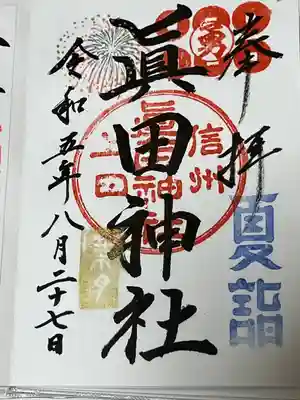 奉拝
勇
夏詣
眞田神社
信州
眞田神社
上田
令和五年八月二十七日